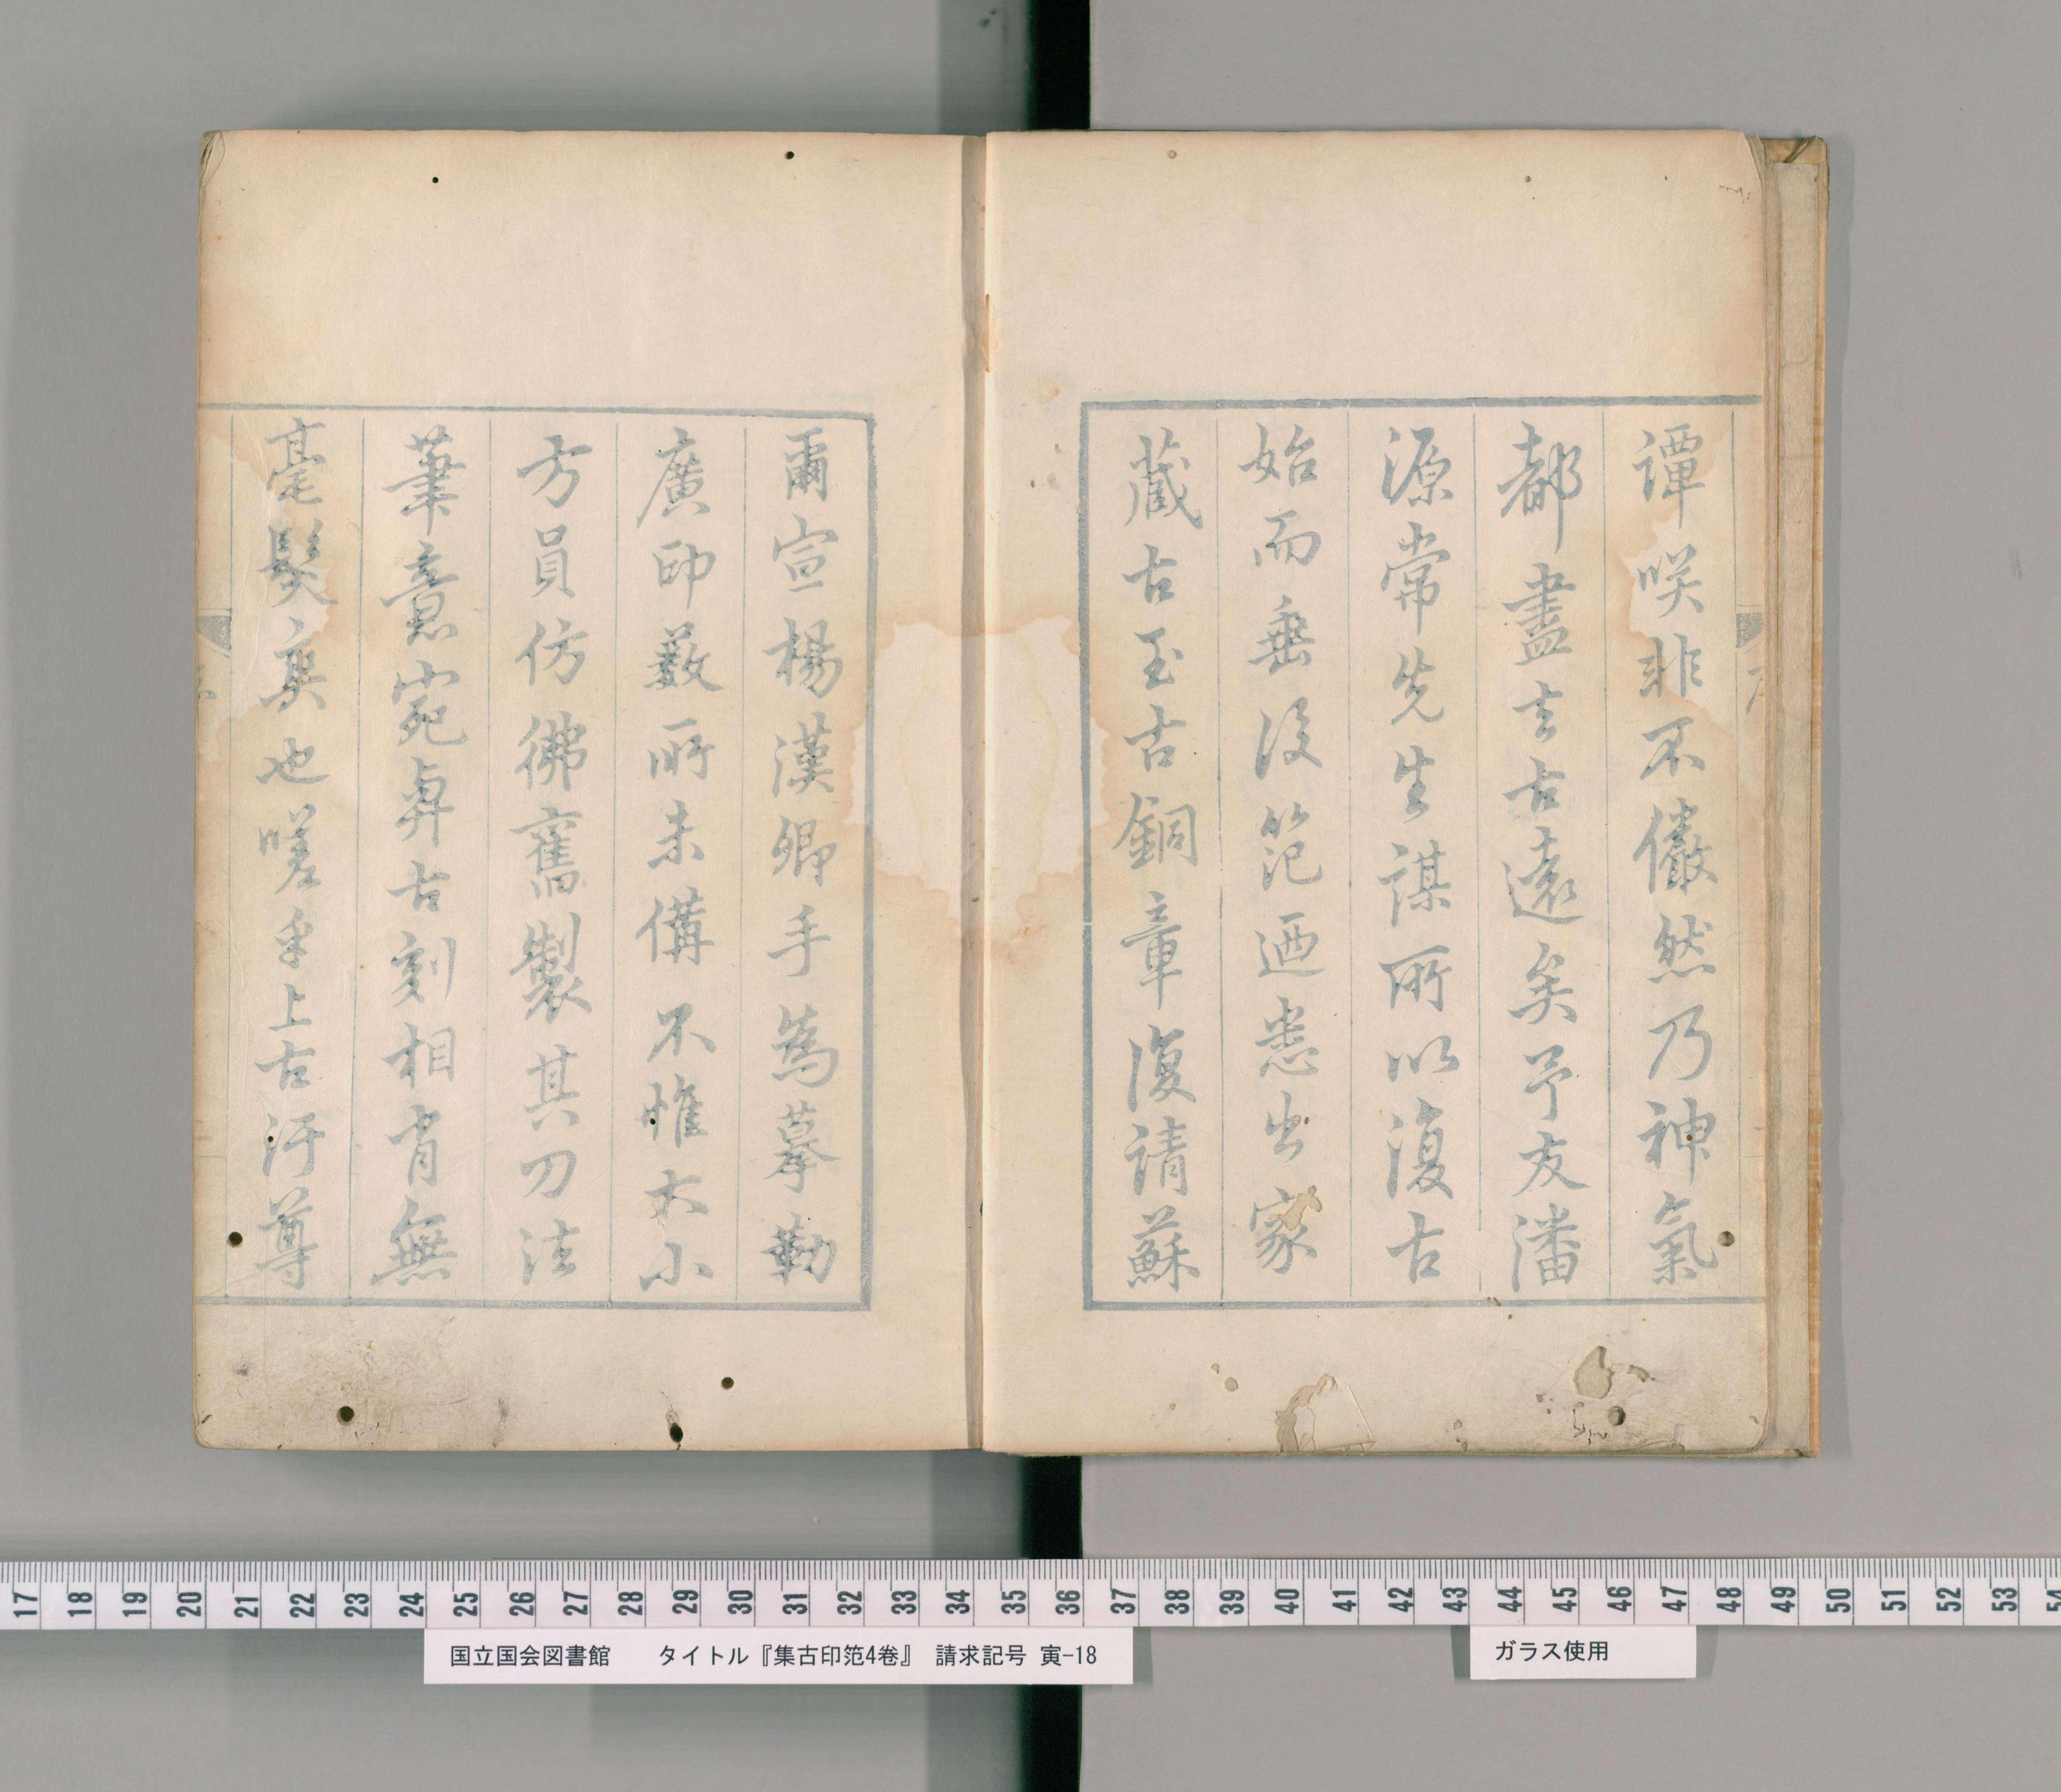 譚咲非不儼然乃神氣
都盡去古遠矣予友潘
源常先生謀所以復古
始而垂後笵迺悉出家
藏古玉古銅章復請蘇
爾宣楊漢卿手為摹勒
廣印藪所未備不惟大小
方員仿彿舊製其刀法
筆意宛與古刻相肖無
毫髮爽也嗟乎上古汙尊
17 18 19 20 21 22 23 24 25 26 27 28 29 30 31 32 33 34 35 36 37 38 39 40 41 42 43 44 45 46 47 48 49 50 51 52 53 54
国立国会図書館 タイトル『集古印笵4巻』 請求記号 寅-18
ガラス使用